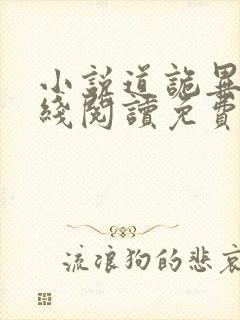 小説道詭異
綫閱讀免費
流浪狗的悲哀